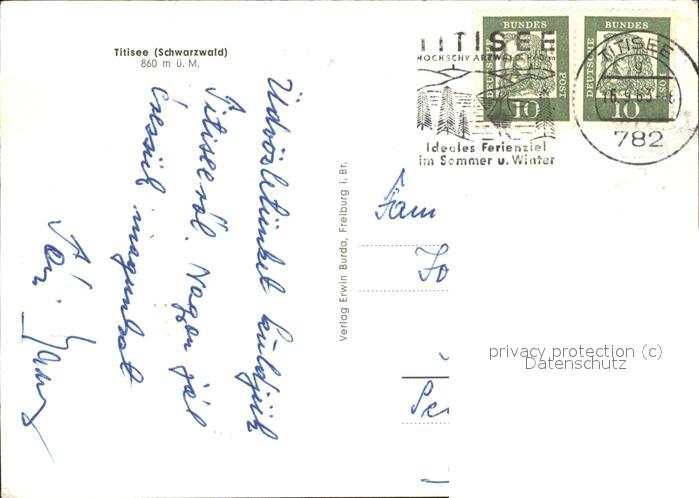 Titisee (Schwarzwald)
860 m ü. M.
Üdvözletünket küldjük
Titiseeről. Nagyon jól
érezzük magunkat
Verlag Erwin Burda, Freiburg i. Br.
TITISEE
HOCHSCHWARZWALD
Ideales Ferienziel
im Sommer u. Winter
DEUTSCHE BUNDES POST
10
DEUTSCHE BUNDES POST
10
TITISEE
782
Fam
privacy protection (c)
Datenschutz